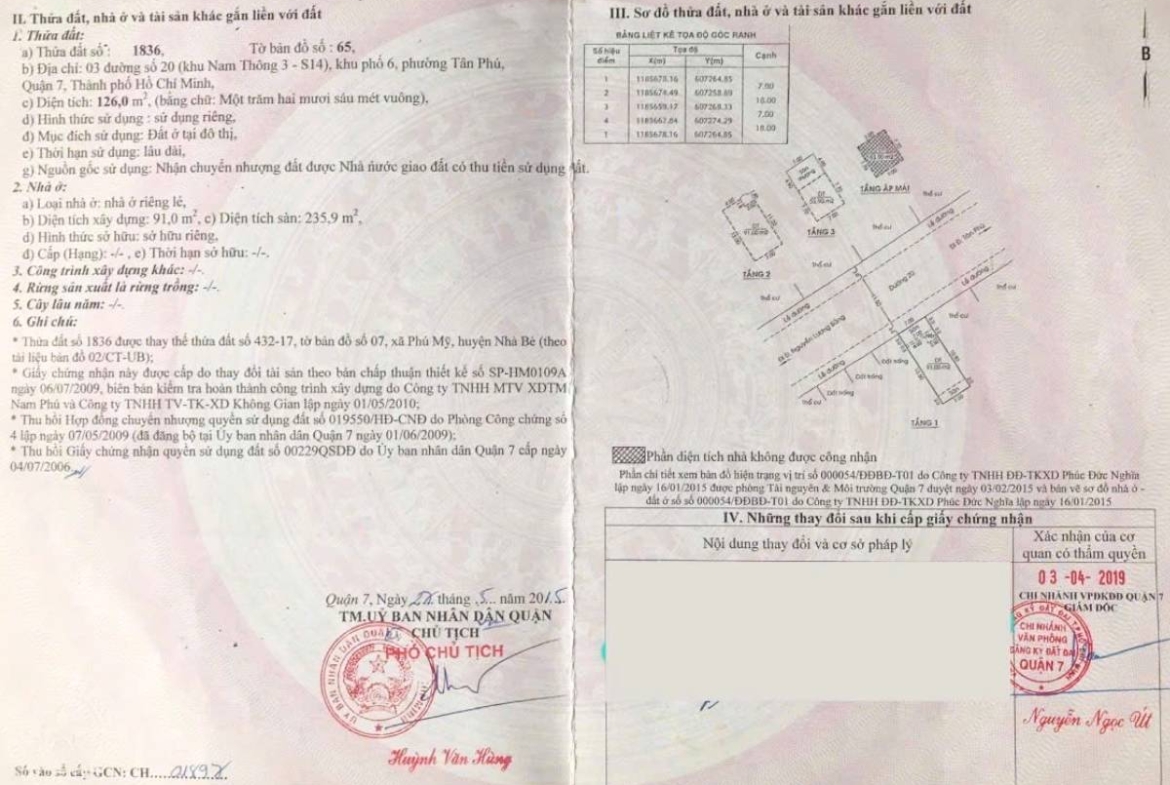 II. Thửa đất, nhà ở và tài sản khác gắn liền với đất
1. Thửa đất:
a) Thửa đất số: 1836, Tờ bản đồ số : 65,
b) Địa chỉ: 03 đường số 20 (khu Nam Thông 3 - S14), khu phố 6, phường Tân Phú,
Quận 7, Thành phố Hồ Chí Minh,
c) Diện tích: 126,0 m², (bằng chữ: Một trăm hai mươi sáu mét vuông),
d) Hình thức sử dụng : sử dụng riêng,
đ) Mục đích sử dụng: Đất ở tại đô thị,
e) Thời hạn sử dụng: lâu dài,
g) Nguồn gốc sử dụng: Nhận chuyển nhượng đất được Nhà nước giao đất có thu tiền sử dụng đất.
2. Nhà ở:
a) Loại nhà ở: nhà ở riêng lẻ,
b) Diện tích xây dựng: 91,0 m², c) Diện tích sàn: 235,9 m²,
d) Hình thức sở hữu: sở hữu riêng,
đ) Cấp (Hạng): -/- , e) Thời hạn sở hữu: -/-.
3. Công trình xây dựng khác: -/-.
4. Rừng sản xuất là rừng trồng: -/-.
5. Cây lâu năm: -/-.
6. Ghi chú:
* Thửa đất số 1836 được thay thế thửa đất số 432-17, tờ bản đồ số 07, xã Phú Mỹ, huyện Nhà Bè (theo
tài liệu bản đồ 02/CT-UB);
* Giấy chứng nhận này được cấp do thay đổi tài sản theo bản chấp thuận thiết kế số SP-HM0109A
ngày 06/07/2009, biên bản kiểm tra hoàn thành công trình xây dựng do Công ty TNHH MTV XDTM
Nam Phú và Công ty TNHH TV-TK-XD Không Gian lập ngày 01/05/2010;
* Thu hồi Hợp đồng chuyển nhượng quyền sử dụng đất số 019550/HĐ-CNĐ do Phòng Công chứng số
4 lập ngày 07/05/2009 (đã đăng bộ tại Ủy ban nhân dân Quận 7 ngày 01/06/2009);
* Thu hồi Giấy chứng nhận quyền sử dụng đất số 00229QSDĐ do Ủy ban nhân dân Quận 7 cấp ngày
04/07/2006
Quận 7, Ngày 22 tháng 5 năm 2015
TM.UỶ BAN NHÂN DÂN QUẬN
CHỦ TỊCH
PHÓ CHỦ TỊCH
Huỳnh Văn Hùng
Số vào sổ cấp GCN: CH
III. Sơ đồ thửa đất, nhà ở và tài sản khác gắn liền với đất
BẢNG LIỆT KÊ TỌA ĐỘ GÓC RANH
Số hiệu điểm Tọa độ Cạnh
X(m) Y(m)
1 1185678.16 607264.85
7.00
2 1185674.49 607258.89
18.00
3 1185659.17 607268.33
7.00
4 1185662.84 607274.29
18.00
1 1185678.16 607264.85
TẦNG ÁP MÁI
TẦNG 3
TẦNG 2
Thổ cư
Lề đường
Đi Đ. Tân Phú
Đường 20
Lề đường
Thổ cư
Thổ cư
Thổ cư
Thổ cư
Lề đường
Đi Đ. Nguyễn Lương Bằng
Lề đường
Đất trống
Đất trống
Đất trống
Thổ cư
Thổ cư
TẦNG 1
Phần diện tích nhà không được công nhận
Phần chi tiết xem bản đồ hiện trạng vị trí số 000054/ĐĐBĐ-T01 do Công ty TNHH ĐĐ-TKXD Phúc Đức Nghĩa
lập ngày 16/01/2015 được phòng Tài nguyên & Môi trường Quận 7 duyệt ngày 03/02/2015 và bản vẽ sơ đồ nhà ở -
đất ở số số 000054/ĐĐBD-T01 do Công ty TNHH ĐĐ-TKXD Phúc Đức Nghĩa lập ngày 16/01/2015
IV. Những thay đổi sau khi cấp giấy chứng nhận
Nội dung thay đổi và cơ sở pháp lý
Xác nhận của cơ
quan có thẩm quyền
03 -04- 2019
CHI NHÁNH VPĐKĐĐ QUẬN 7
GIÁM ĐỐC
CHI NHÁNH
VĂN PHÒNG
ĐĂNG KÝ ĐẤT ĐAI
QUẬN 7
Nguyễn Ngọc Út
B